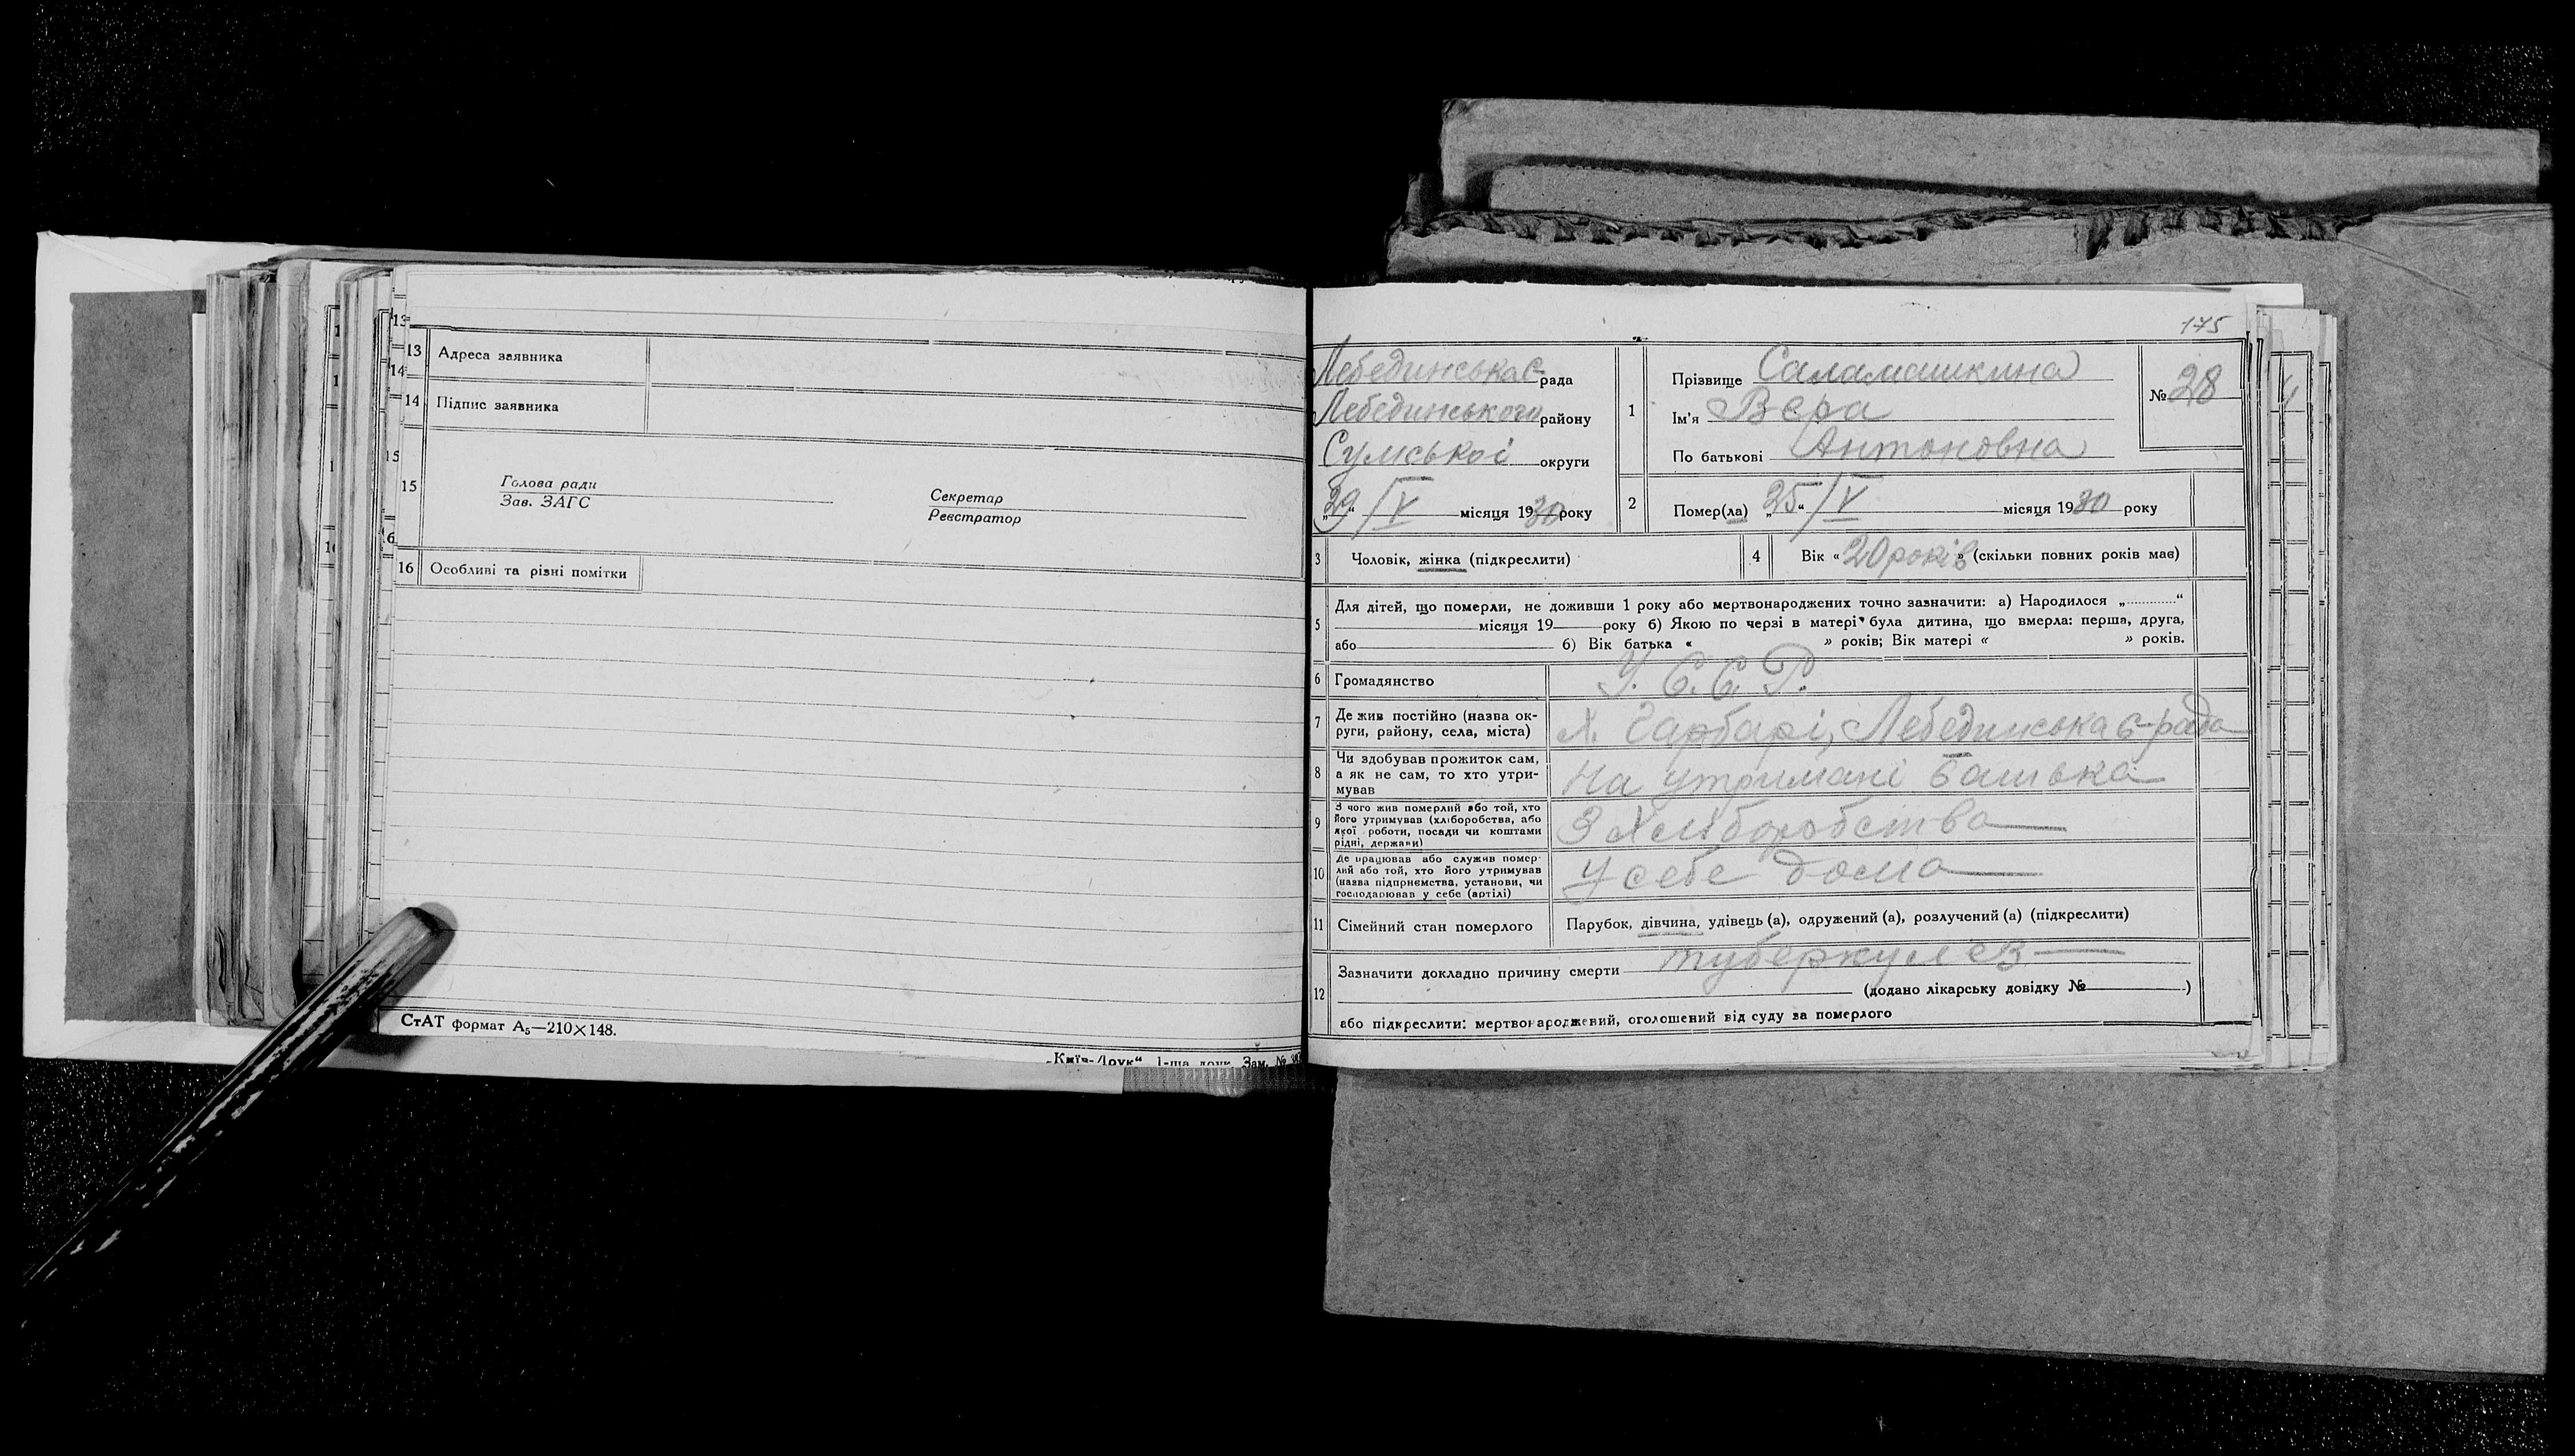 13 Адреса заявника
14 Підпис заявника
15 Голова ради
Зав. ЗАГС
Секретар
Реєстратор
16 Особливі та різні помітки
СтАТ формат А₅—210×148.
„Київ-Друк“ 1-ша друк. Зам. №
175
Лебединська с-рада
Лебединського району
Сумської округи
„29“/V місяця 1930 року
1 Прізвище Саламашкина
Ім'я Вєра
По батькові Антоновна
№ 28
2 Помер(ла) „25“/V місяця 1930 року
3 Чоловік, жінка (підкреслити)
4 Вік «20 років» (скільки повних років має)
5 Для дітей, що померли, не доживши 1 року або мертвонароджених точно зазначити: а) Народилося „............“
місяця 19 року б) Якою по черзі в матері була дитина, що вмерла: перша, друга,
або б) Вік батька « » років; Вік матері « » років.
6 Громадянство У. С. С. Р.
7 Де жив постійно (назва ок-
руги, району, села, міста)
х. Гарбарі, Лебединська с-рада
8 Чи здобував прожиток сам,
а як не сам, то хто утри-
мував
На утримані батька
9 З чого жив померлий або той, хто
його утримував (хліборобства, або
якої роботи, посади чи коштами
рідні, держави)
З Хліборобства
10 Де працював або служив помер-
лий або той, хто його утримував
(назва підприємства, установи, чи
господарював у себе (артілі)
У себе дома
11 Сімейний стан померлого
Парубок, дівчина, удівець (а), одружений (а), розлучений (а) (підкреслити)
12 Зазначити докладно причину смерти туберкулез
(додано лікарську довідку № )
або підкреслити: мертвонароджений, оголошений від суду за померлого